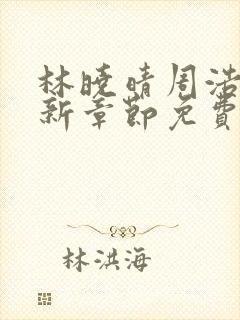 林曉晴周浩
新章節免費
林洪海